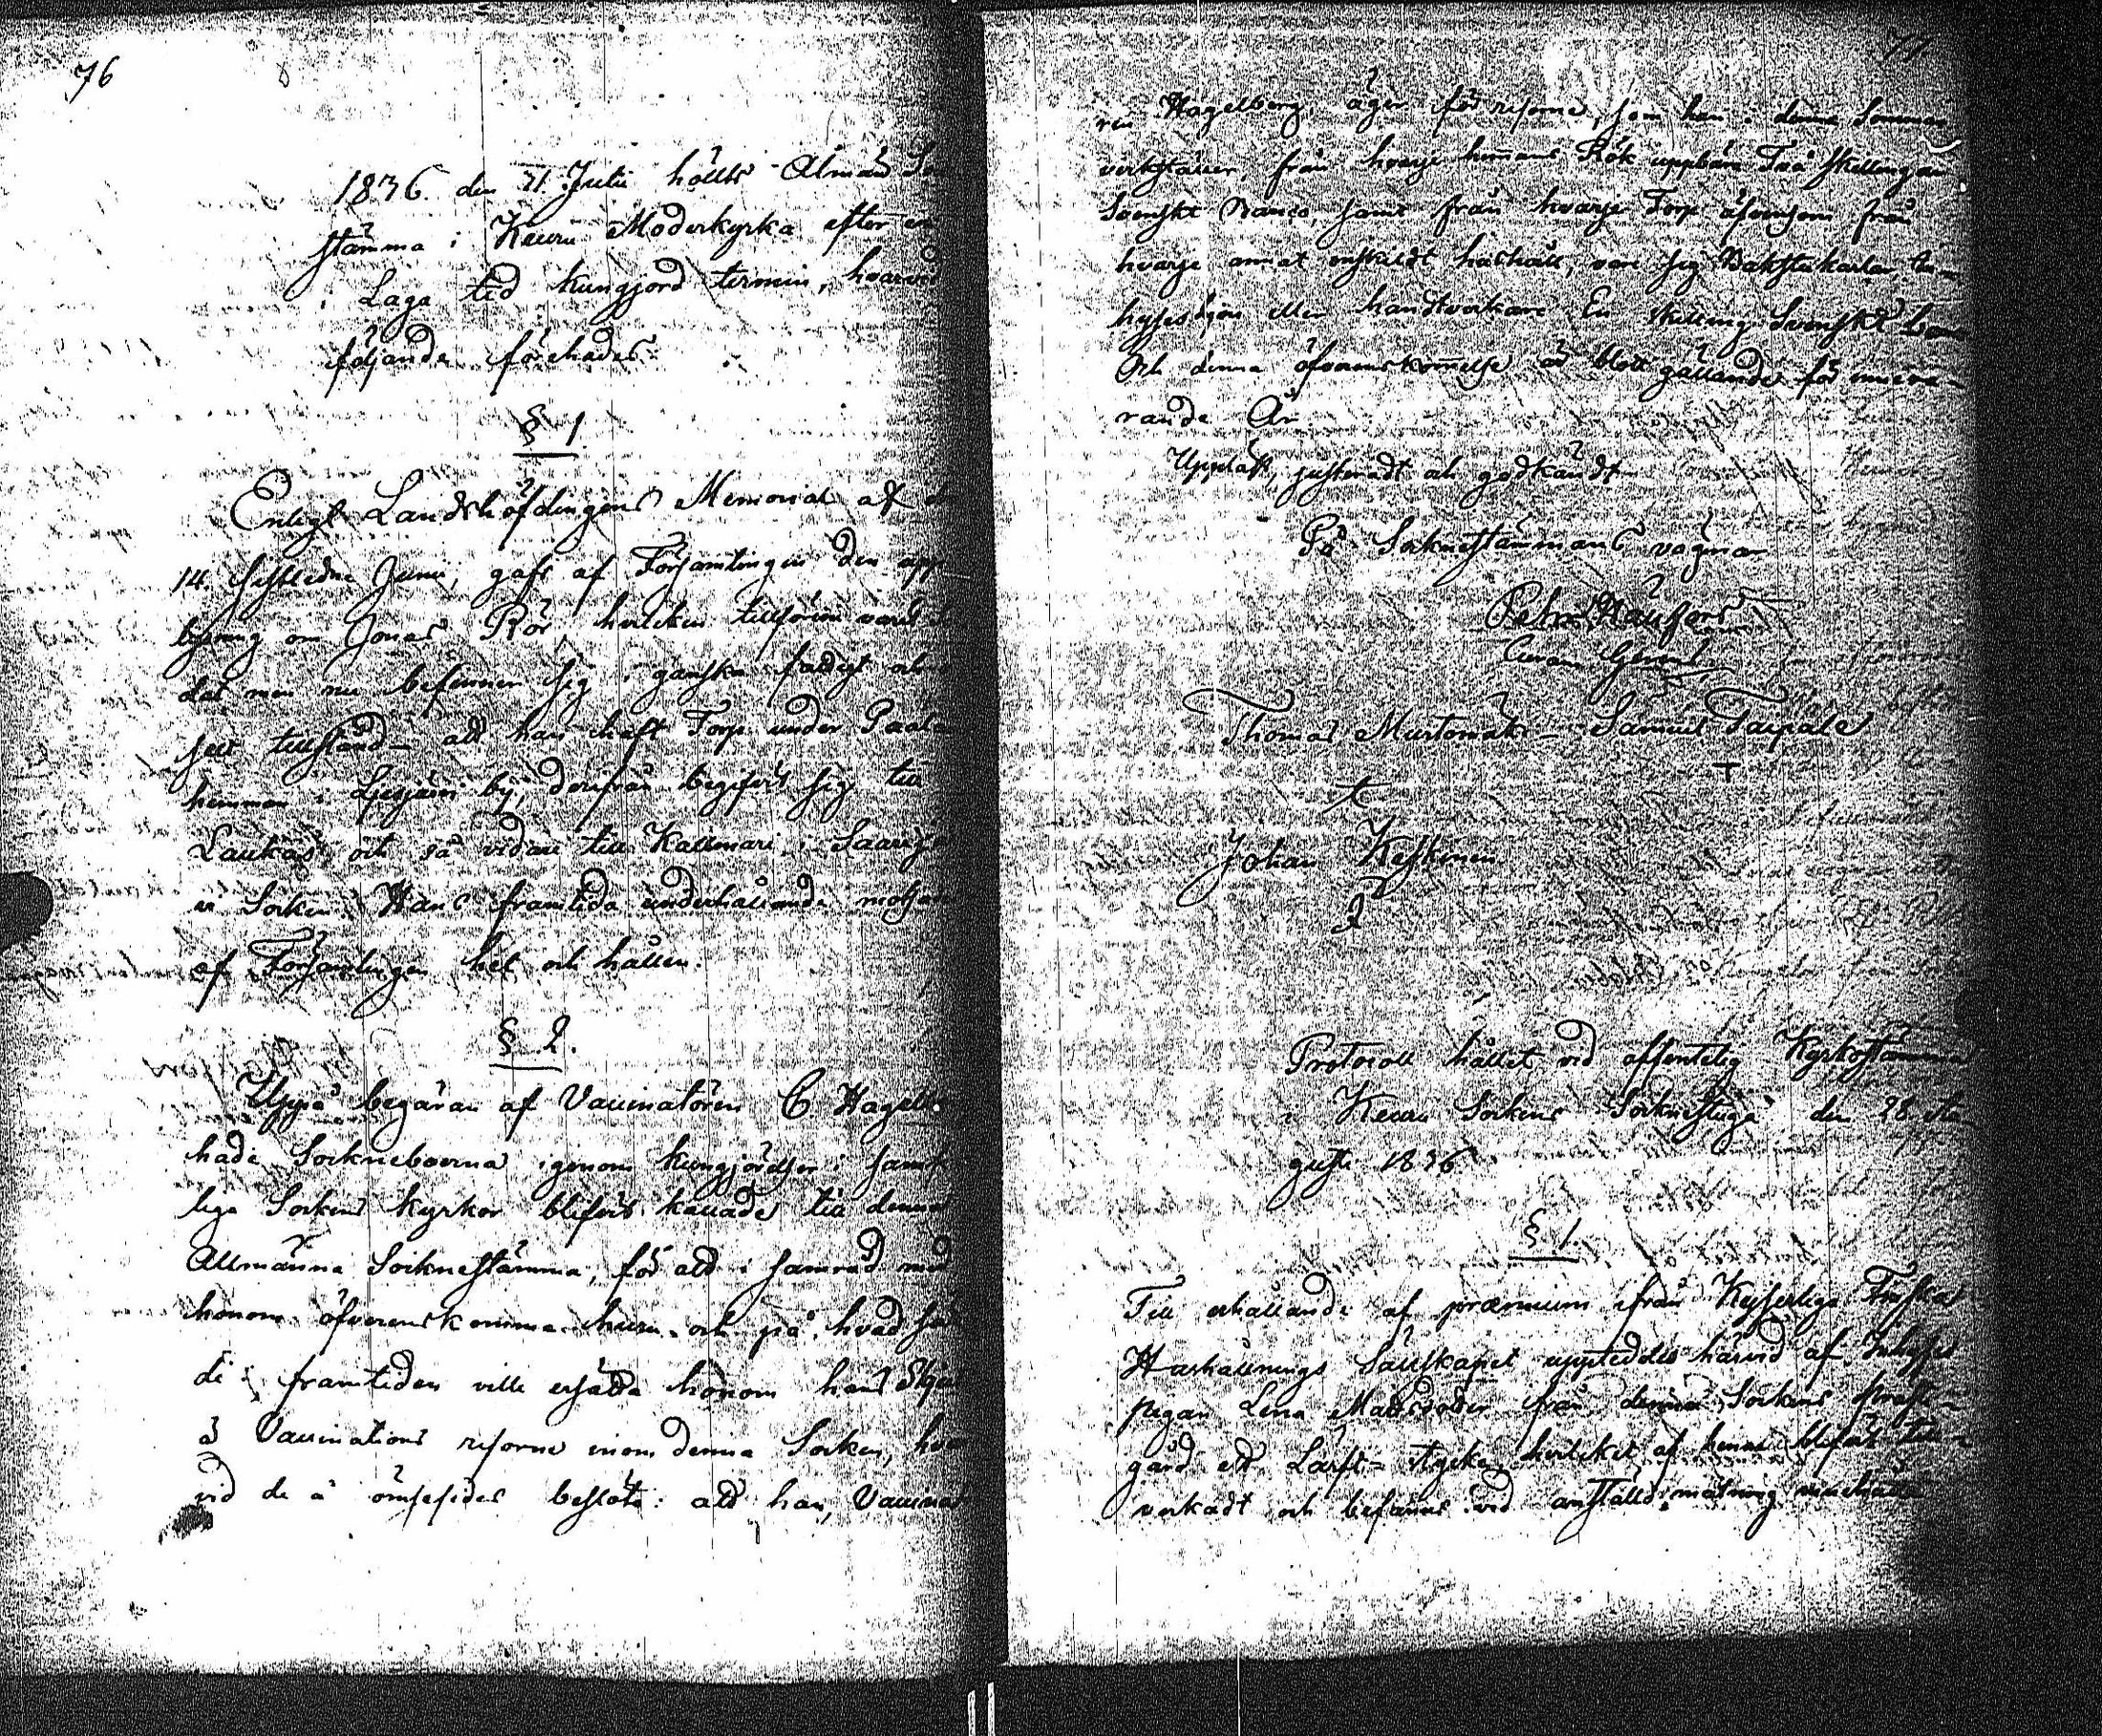 76
1836. den 31 Julii hölts Almän So
stämma i Keuru Moderkyrka efter en
i Laga tid kungjord termin, hvarvid
följande förehades:
§ 1
Enligt Landshöfdingens Memorial af d
14. sistledne Junii, gafs af Församlingen den upp
lysning om Jonas Rör, hvilken tillförene varit
dat men nu befinner sig i ganska fattigt och
selt tillstånd - att han haft Torp under Paala
hemman i Liesjärvi by, derifrån begifvit sig till
Laukas och så vidare till Kallmari i Saarij
vi Socken. Hans framtida underhållande
af Församlingen helt och hållen.
§ 2.
Uppå begäran af Vaccinatören C. Hagelb
hade Sockneboerna igenom kungjörelser i samt
lige Sockens Kyrkor blifvit kallade till denna
Allmänna Socknestämma, för att i samråd med
honom öfverenskomma huru och på hvad sätt
de i framtiden ville ersätta honom hans Skjut
å Vaccinations resorne inom denna Socken, hvar
vid de å ömsesidor beslöto: att han, Vaccinat
77
ren Hagelberg, äger för resorne, som han i denna Sommar
verkställer, från hvarje hemmans Rök uppbära Två skillingar
Svenskt Banco, samt från hvarje Torp äfvensom från
hvarje annat enskildt hushåll, vare sig Backstukarlar, In-
hyses hjon eller handtverkare En skilling Svenskt banco
Och denna öfverenskommelse är blott gällande för inneva-
rande År.
Uppläst, justeradt och godkändt
På Socknestämmans vägnar
Thomas Murtomäki - Samuel Taipale
Johan Keskinen
Protocoll hållet vid offentelig Kyrkostämma
i Keuru Sockens Socknestuga den 28 Au
gusti 1836
§ 1.
Till erhållande af præmium ifrån Kejserliga Finska
Hushållnings Sällskapet uppteddes härvid af Inhyses
pigan Lena Mattsdotter från denna Sockens Prest-
gård ett Lärfts-stycke, hvilket af henne blifvit till-
verkadt och befanns vid anställd mätning innehålla